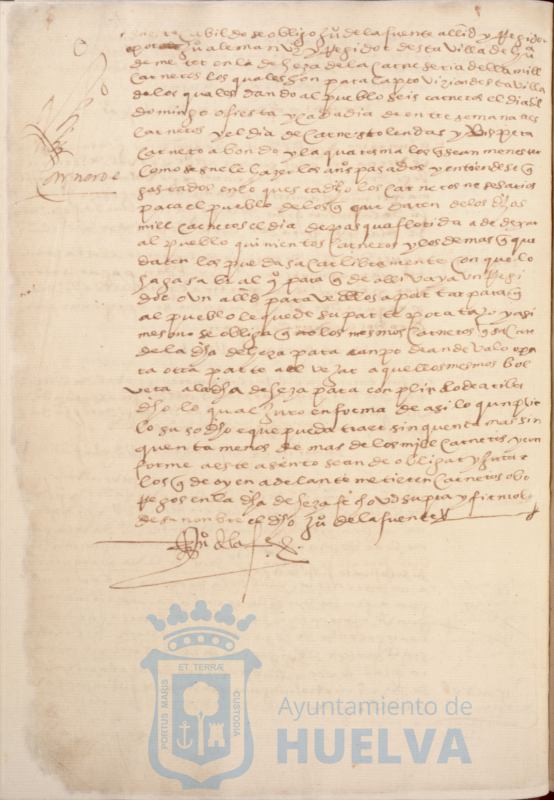 cabildo se obligo Ju° de la fuente alld y Regidor
Ju° aleman vz° y Regidor desta villa de
de meter en la deheza de la carneseria della mill
carneros los quales son para la provizion desta villa
de los quales dando al pueblo seis carneros el dia del
domingo o fiesta y cada dia de entre semana tres
carneros y el dia de carnestolendas y
carnero abondo y la quaresma los q seran menester
como se suele hazer los años pasados y entiendese q
gastados en lo ques dho los carneros nesesarios
para el pueblo de los q quedaren de los dhos
mill carneros el dia de pasqua florida a de dexar
al pueblo quinientos carneros y los demas q que
daren los pueda sacar libremente con que lo
haga saber al q° para q de alli vaya un Regi
dor o un alld para vellos apartar para q
al pueblo le quede su parte por a razo y asi
mesmo se obliga q no los mesmos carneros q
de la dha deheza para canpo dean de valo o pa
ra otra parte a de vezar a quellos mesmos bol
vera a la dha deheza para conplir lo de arriba
dho lo qual juro en forma de asi lo cunplir
lo suso dho e que pueda traer sinquenta mas sin
quenta menos de mas de los mill carneros y con
forme a este asento sean de obligar y
los q de oy en adelante metieren carneros o bo
rregos en la dha deheza fho ud supra y firmolo
de su nonbre el dho Ju° de la fuente
Ju° de la f
carneros
ET TERRÆ
PORTUS MARIS
CUSTODIA
Ayuntamiento de
HUELVA